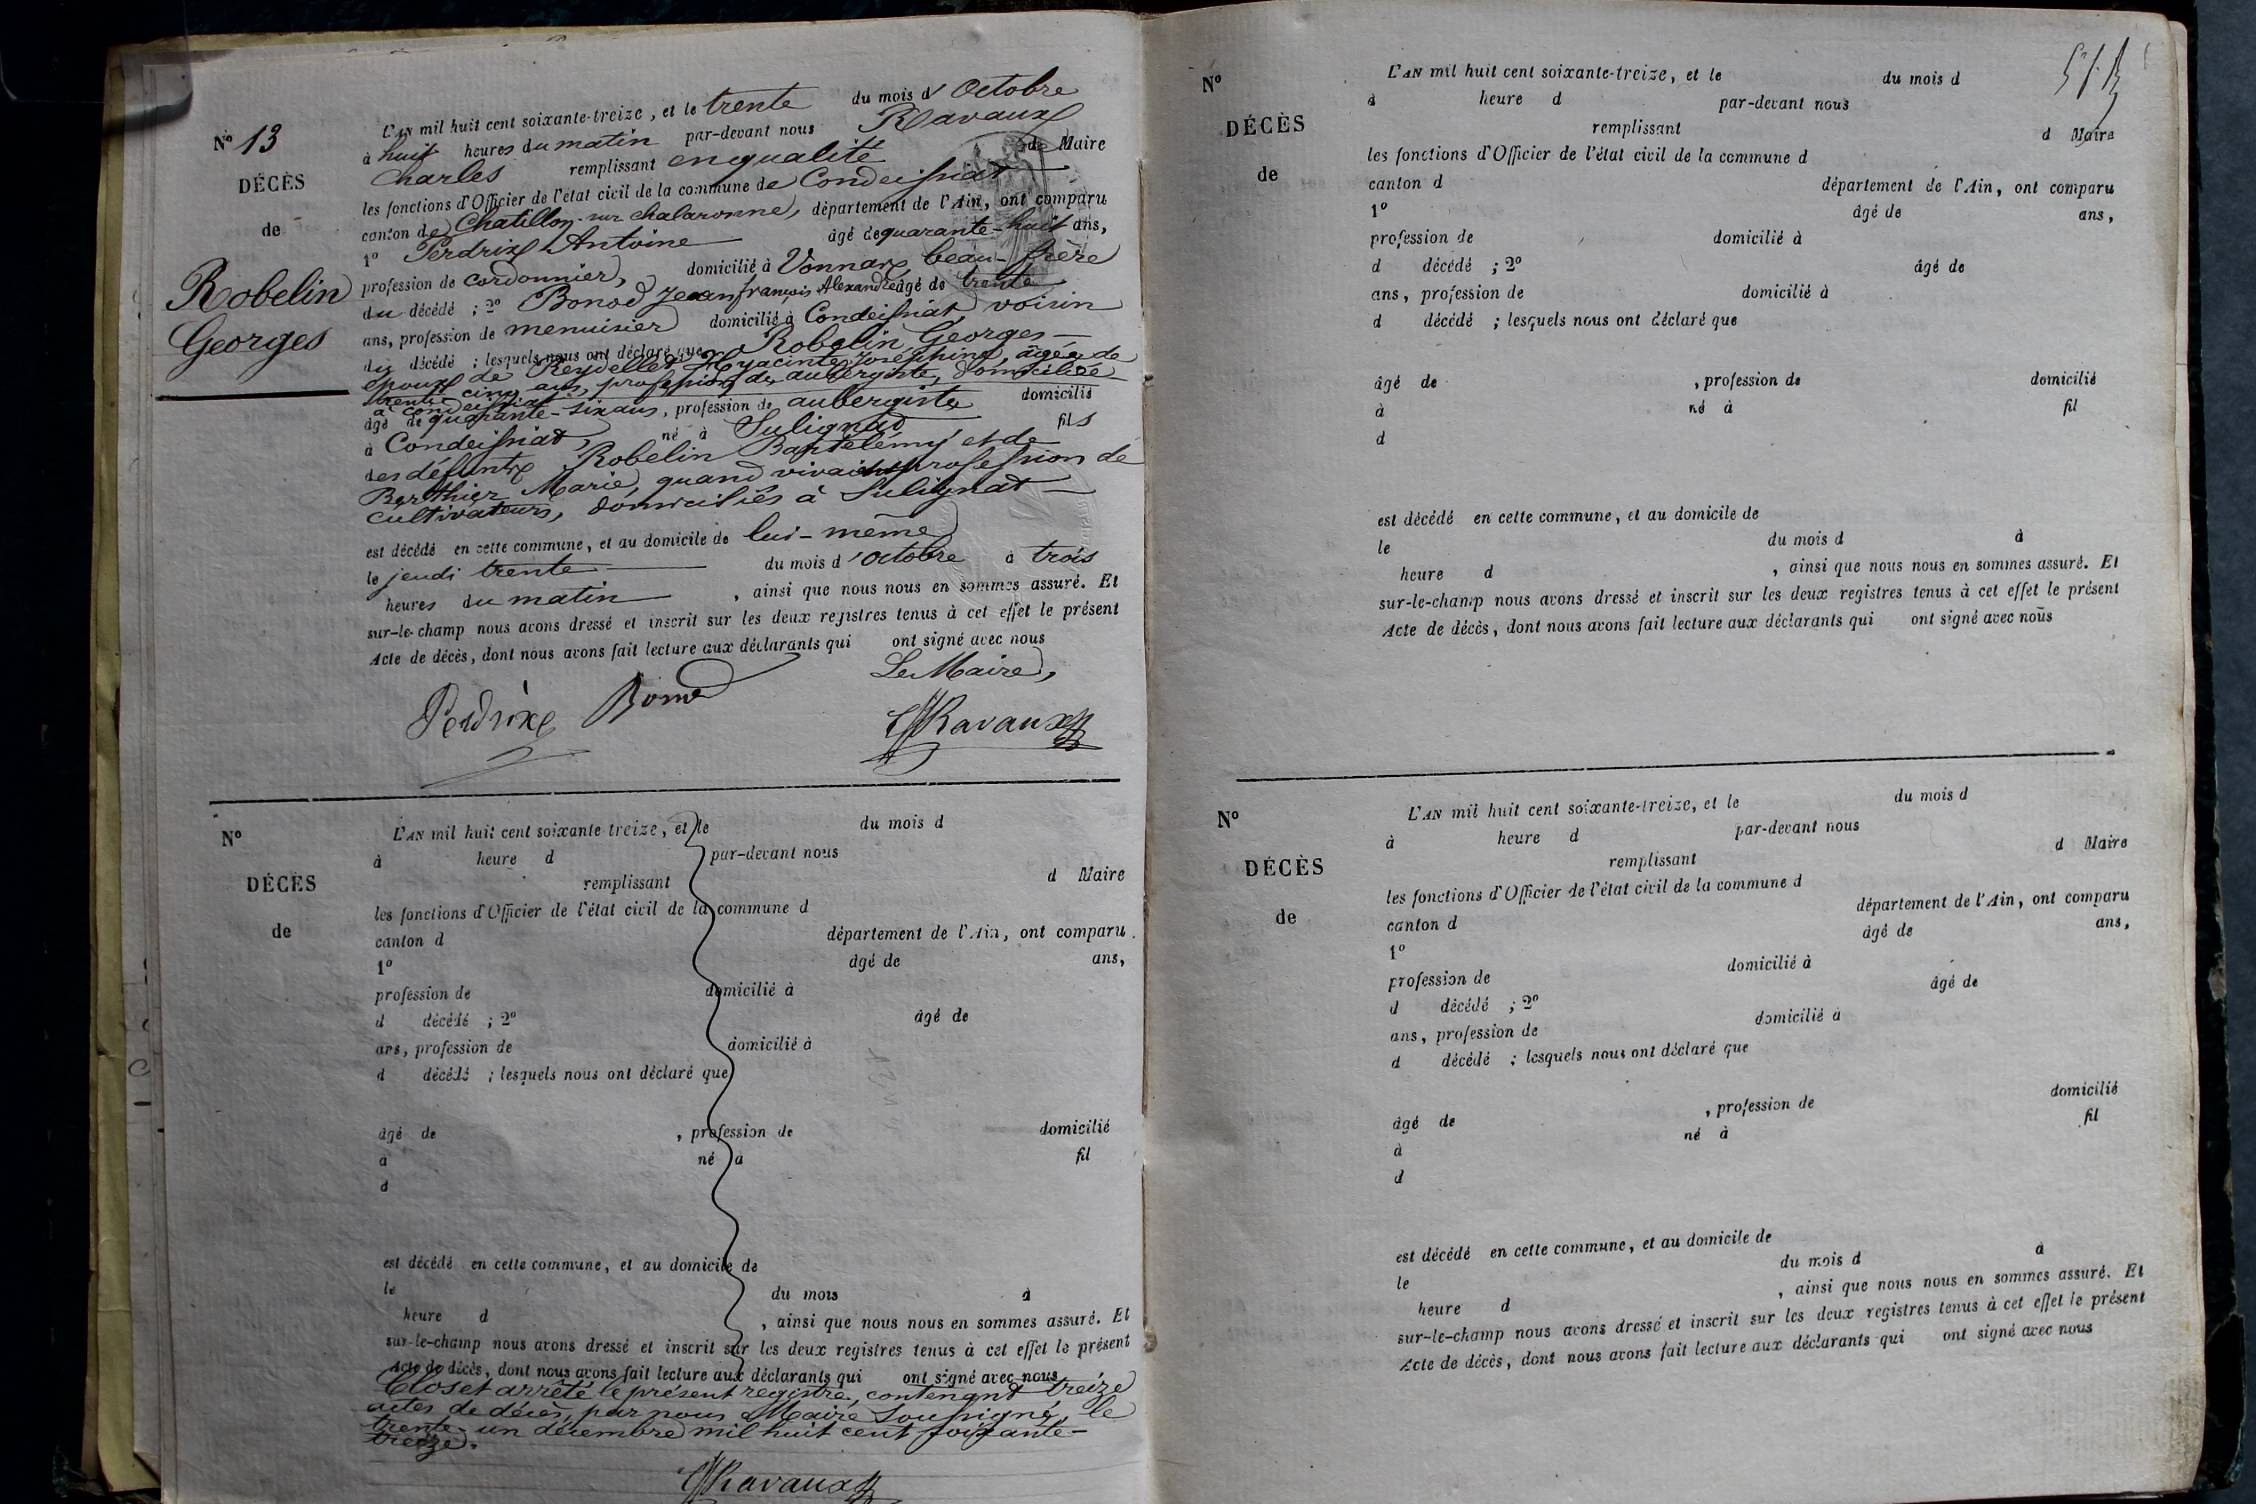 N° 13
DÉCÈS
de
Robelin
Georges
L'AN mil huit cent soixante-treize, et le trente du mois d'Octobre
à huit heures du matin par-devant nous Ravaux
Charles remplissant en qualité de Maire
les fonctions d'Officier de l'état civil de la commune de Condeissiat
canton de Chatillon-sur chalaronne, département de l'Ain, ont comparu
1° Perdrix Antoine âgé de quarante-huit ans,
profession de cordonnier, domicilié à Vonnas, beau-frère
du décédé ; 2° Bonod Jean françois Alexandre âgé de trente
ans, profession de menuisier domicilié à Condeissiat, voisin
du décédé ; lesquels nous ont déclaré que Robelin Georges
époux de Reydellet Hyacinte Joséphine, âgée de
trente cinq ans, profession de aubergiste, domiciliée
à Condeissiat
âgé de quarante-six ans, profession de aubergiste domicilié
à Condeissiat, né à Sulignat fils
des défunts Robelin Bartélémy et de
Berthier Marie, quand vivaient profession de
cultivateurs, domiciliés à Sulignat
est décédé en cette commune, et au domicile de lui-même
le jeudi trente du mois d'octobre à trois
heures du matin, ainsi que nous nous en sommes assuré. Et
sur-le-champ nous avons dressé et inscrit sur les deux registres tenus à cet effet le présent
Acte de décès, dont nous avons fait lecture aux déclarants qui ont signé avec nous
Le Maire,
Perdrix Bonod Ravaux
N°
DÉCÈS
de
L'AN mil huit cent soixante-treize, et le du mois d
à heure d par-devant nous
remplissant d Maire
les fonctions d'Officier de l'état civil de la commune d
canton d département de l'Ain, ont comparu
1° âgé de ans,
profession de domicilié à
d décédé ; 2° âgé de
ans, profession de domicilié à
d décédé ; lesquels nous ont déclaré que
âgé de , profession de domicilié
à né à fil
d
est décédé en cette commune, et au domicile de
le du mois à
heure d , ainsi que nous nous en sommes assuré. Et
sur-le-champ nous avons dressé et inscrit sur les deux registres tenus à cet effet le présent
Acte de décès, dont nous avons fait lecture aux déclarants qui ont signé avec nous
Clos et arrêté le présent registre, contenant treize
actes de décès, par nous Maire Soussigné, le
trente-un décembre mil huit cent soixante-
treize.
Ravaux
N°
DÉCÈS
de
L'AN mil huit cent soixante-treize, et le du mois d
à heure d par-devant nous
remplissant d Maire
les fonctions d'Officier de l'état civil de la commune d
canton d département de l'Ain, ont comparu
1° âgé de ans,
profession de domicilié à
d décédé ; 2° âgé de
ans, profession de domicilié à
d décédé ; lesquels nous ont déclaré que
âgé de , profession de domicilié
à né à fil
d
est décédé en cette commune, et au domicile de
le du mois d à
heure d , ainsi que nous nous en sommes assuré. Et
sur-le-champ nous avons dressé et inscrit sur les deux registres tenus à cet effet le présent
Acte de décès, dont nous avons fait lecture aux déclarants qui ont signé avec nous
N°
DÉCÈS
de
L'AN mil huit cent soixante-treize, et le du mois d
à heure d par-devant nous
remplissant d Maire
les fonctions d'Officier de l'état civil de la commune d
canton d département de l'Ain, ont comparu
1° âgé de ans,
profession de domicilié à
d décédé ; 2° âgé de
ans, profession de domicilié à
d décédé ; lesquels nous ont déclaré que
âgé de , profession de domicilié
à né à fil
d
est décédé en cette commune, et au domicile de
le du mois d à
heure d , ainsi que nous nous en sommes assuré. Et
sur-le-champ nous avons dressé et inscrit sur les deux registres tenus à cet effet le présent
Acte de décès, dont nous avons fait lecture aux déclarants qui ont signé avec nous